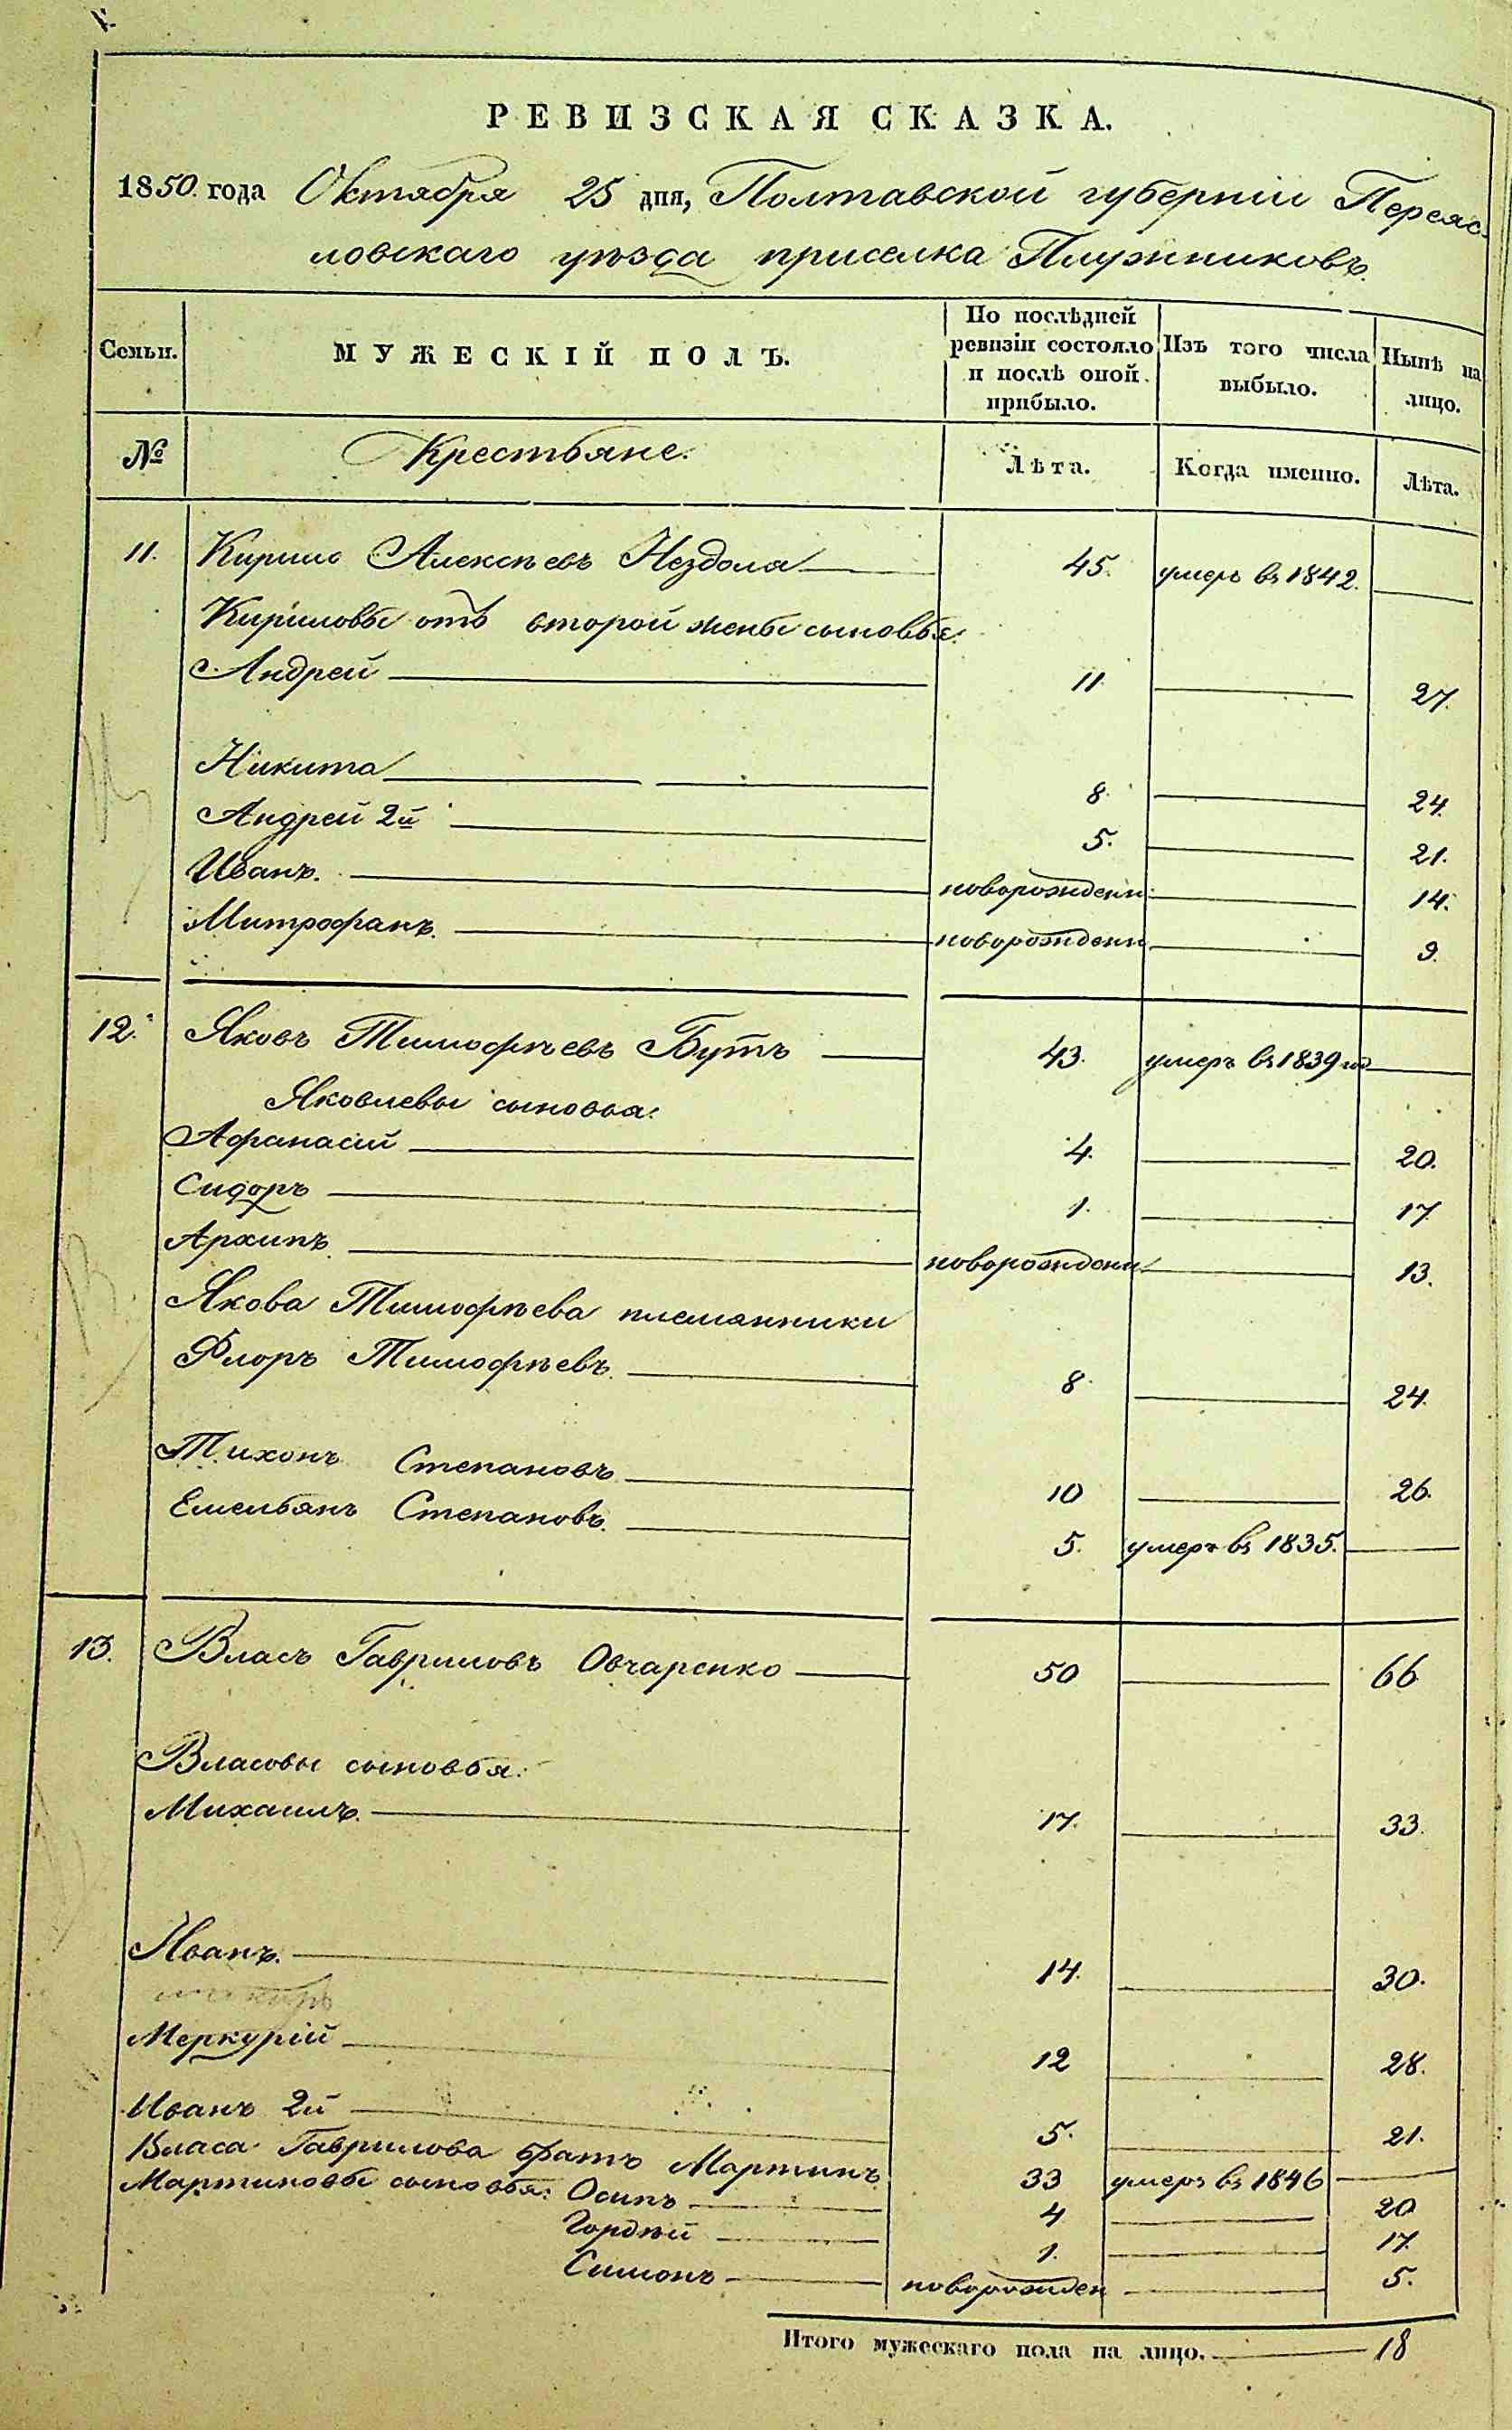 РЕВИЗСКАЯ СКАЗКА.
1850 года Октября 25 дня, Полтавской губерніи Переяс-
ловскаго уѣзда приселка Плужниковъ.
Семьи. МУЖЕСКІЙ ПОЛЪ. По послѣдней ревизіи состояло и послѣ оной прибыло. Изъ того числа выбыло. Нынѣ на лицо.
№ Крестьяне. Лѣта. Когда именно. Лѣта.
11. Кирило Алексѣевъ Нездола 45. умеръ въ 1842.
Кириловы отъ второй жены сыновья:
Андрей 11 27.
Никита 8. 24.
Андрей 2й 5. 21.
Иванъ. новорожден 14.
Митрофанъ. новорожден 9.
12. Яковъ Тимофѣевъ Бутъ 43. умеръ въ 1839 го
Яковлевы сыновья:
Афанасій 4. 20.
Сидоръ 1. 17
Архипъ. новорожден 13.
Якова Тимофѣева племянники
Флоръ Тимофѣевъ. 8. 24.
Тихонъ Степановъ 10 26.
Емельянъ Степановъ. 5. умеръ въ 1835.
13. Власъ Гавриловъ Овчаренко 50 66
Власовы сыновья:
Михаилъ. 17. 33.
Иванъ. 14. 30.
Меркурій 12 28.
Иванъ 2й 5. 21.
Власа Гаврилова братъ Мартинъ 33 умеръ въ 1846
Мартиновы сыновья: Осипъ 4 20
Гордѣй 1. 17.
Симонъ новорожден 5.
Итого мужескаго пола на лицо. 18